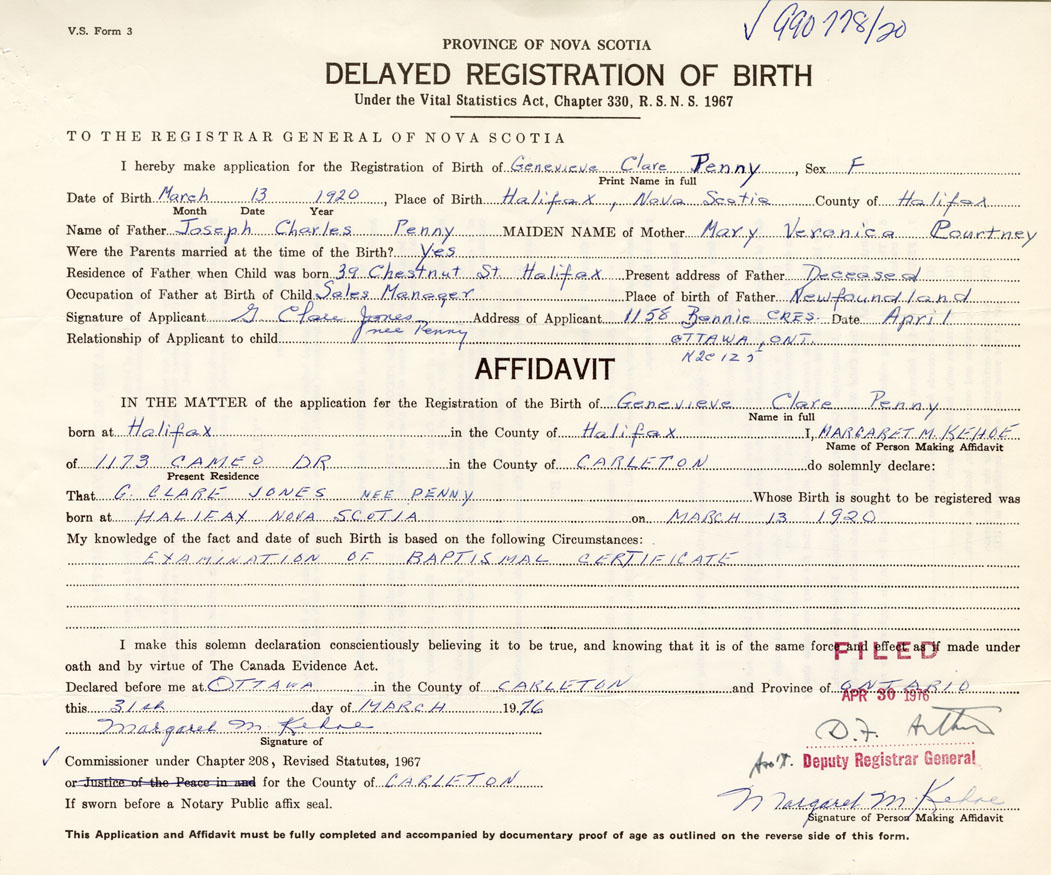 V.S. Form 3
✓ 990 778/20
PROVINCE OF NOVA SCOTIA
DELAYED REGISTRATION OF BIRTH
Under the Vital Statistics Act, Chapter 330, R.S.N.S. 1967
TO THE REGISTRAR GENERAL OF NOVA SCOTIA
I hereby make application for the Registration of Birth of Genevieve Clare Penny, Sex F
Print Name in full
Date of Birth March 13 1920, Place of Birth Halifax, Nova Scotia County of Halifax
Month Date Year
Name of Father Joseph Charles Penny MAIDEN NAME of Mother Mary Veronica Pourtney
Were the Parents married at the time of the Birth? Yes
Residence of Father when Child was born 39 Chestnut St. Halifax Present address of Father Deceased
Occupation of Father at Birth of Child Sales Manager Place of birth of Father Newfoundland
Signature of Applicant G Clare Jones Address of Applicant 1158 Bonnie CRES. Date April
nee Penny
Relationship of Applicant to child OTTAWA, ONT.
AFFIDAVIT
IN THE MATTER of the application for the Registration of the Birth of Genevieve Clare Penny
Name in full
born at Halifax in the County of Halifax I, MARGARET M. KEHOE
Name of Person Making Affidavit
of 1173 CAMEO DR in the County of CARLETON do solemnly declare:
Present Residence
That G. CLARE JONES NEE PENNY Whose Birth is sought to be registered was
born at HALIFAX NOVA SCOTIA on MARCH 13 1920
My knowledge of the fact and date of such Birth is based on the following Circumstances:
EXAMINATION OF BAPTISMAL CERTIFICATE
I make this solemn declaration conscientiously believing it to be true, and knowing that it is of the same force and effect as if made under
FILED
oath and by virtue of The Canada Evidence Act.
Declared before me at OTTAWA in the County of CARLETON and Province of ONTARIO
APR 30 1976
this 31st day of MARCH 1976
Margaret M. Kehoe
Signature of
D.F. Arthur
✓ Commissioner under Chapter 208, Revised Statutes, 1967
Deputy Registrar General
or Justice of the Peace in and for the County of CARLETON
Margaret M. Kehoe
If sworn before a Notary Public affix seal.
Signature of Person Making Affidavit
This Application and Affidavit must be fully completed and accompanied by documentary proof of age as outlined on the reverse side of this form.